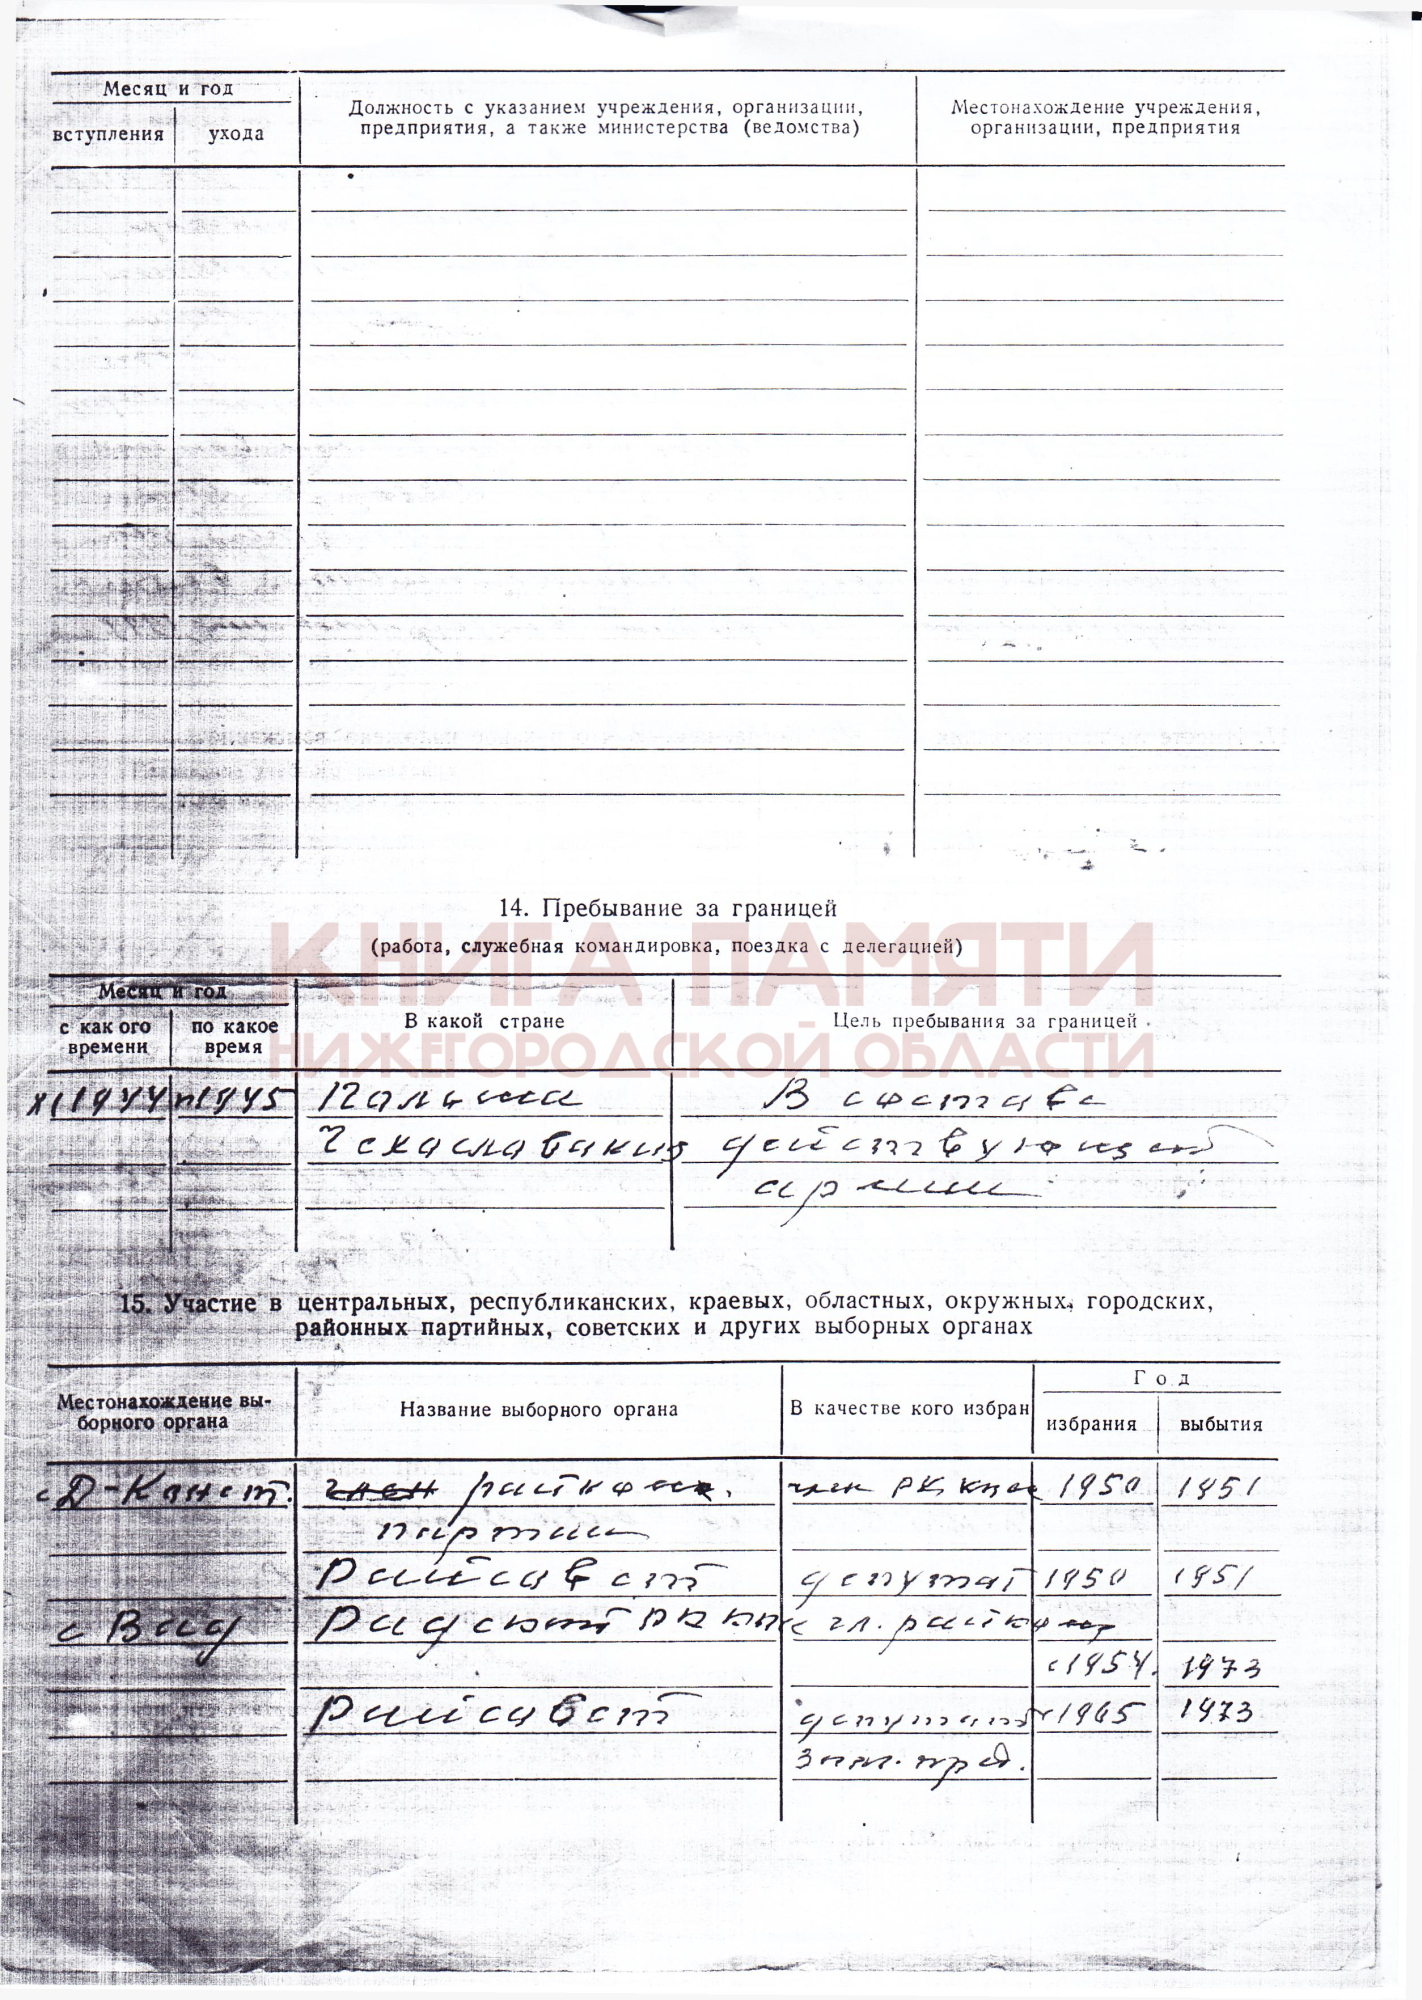 Месяц и год
вступления ухода
Должность с указанием учреждения, организации,
предприятия, а также министерства (ведомства)
Местонахождение учреждения,
организации, предприятия
14. Пребывание за границей
(работа, служебная командировка, поездка с делегацией)
КНИГА ПАМЯТИ
НИЖЕГОРОДСКОЙ ОБЛАСТИ
Месяц и год
с какого времени
по какое время
В какой стране
Цель пребывания за границей
XI 1944 1945 Польша В составе
Чехаславакия действующей
армии
15. Участие в центральных, республиканских, краевых, областных, окружных, городских,
районных партийных, советских и других выборных органах
Местонахождение вы-
борного органа
Название выборного органа
В качестве кого избран
Год
избрания выбытия
с Д-Конст. член райком. член РК КПСС 1950 1951
партии
Райсавет депутат 1950 1951
с Вад чл. райкома
с 1954. 1973
Райсавет депутат 1965 1973